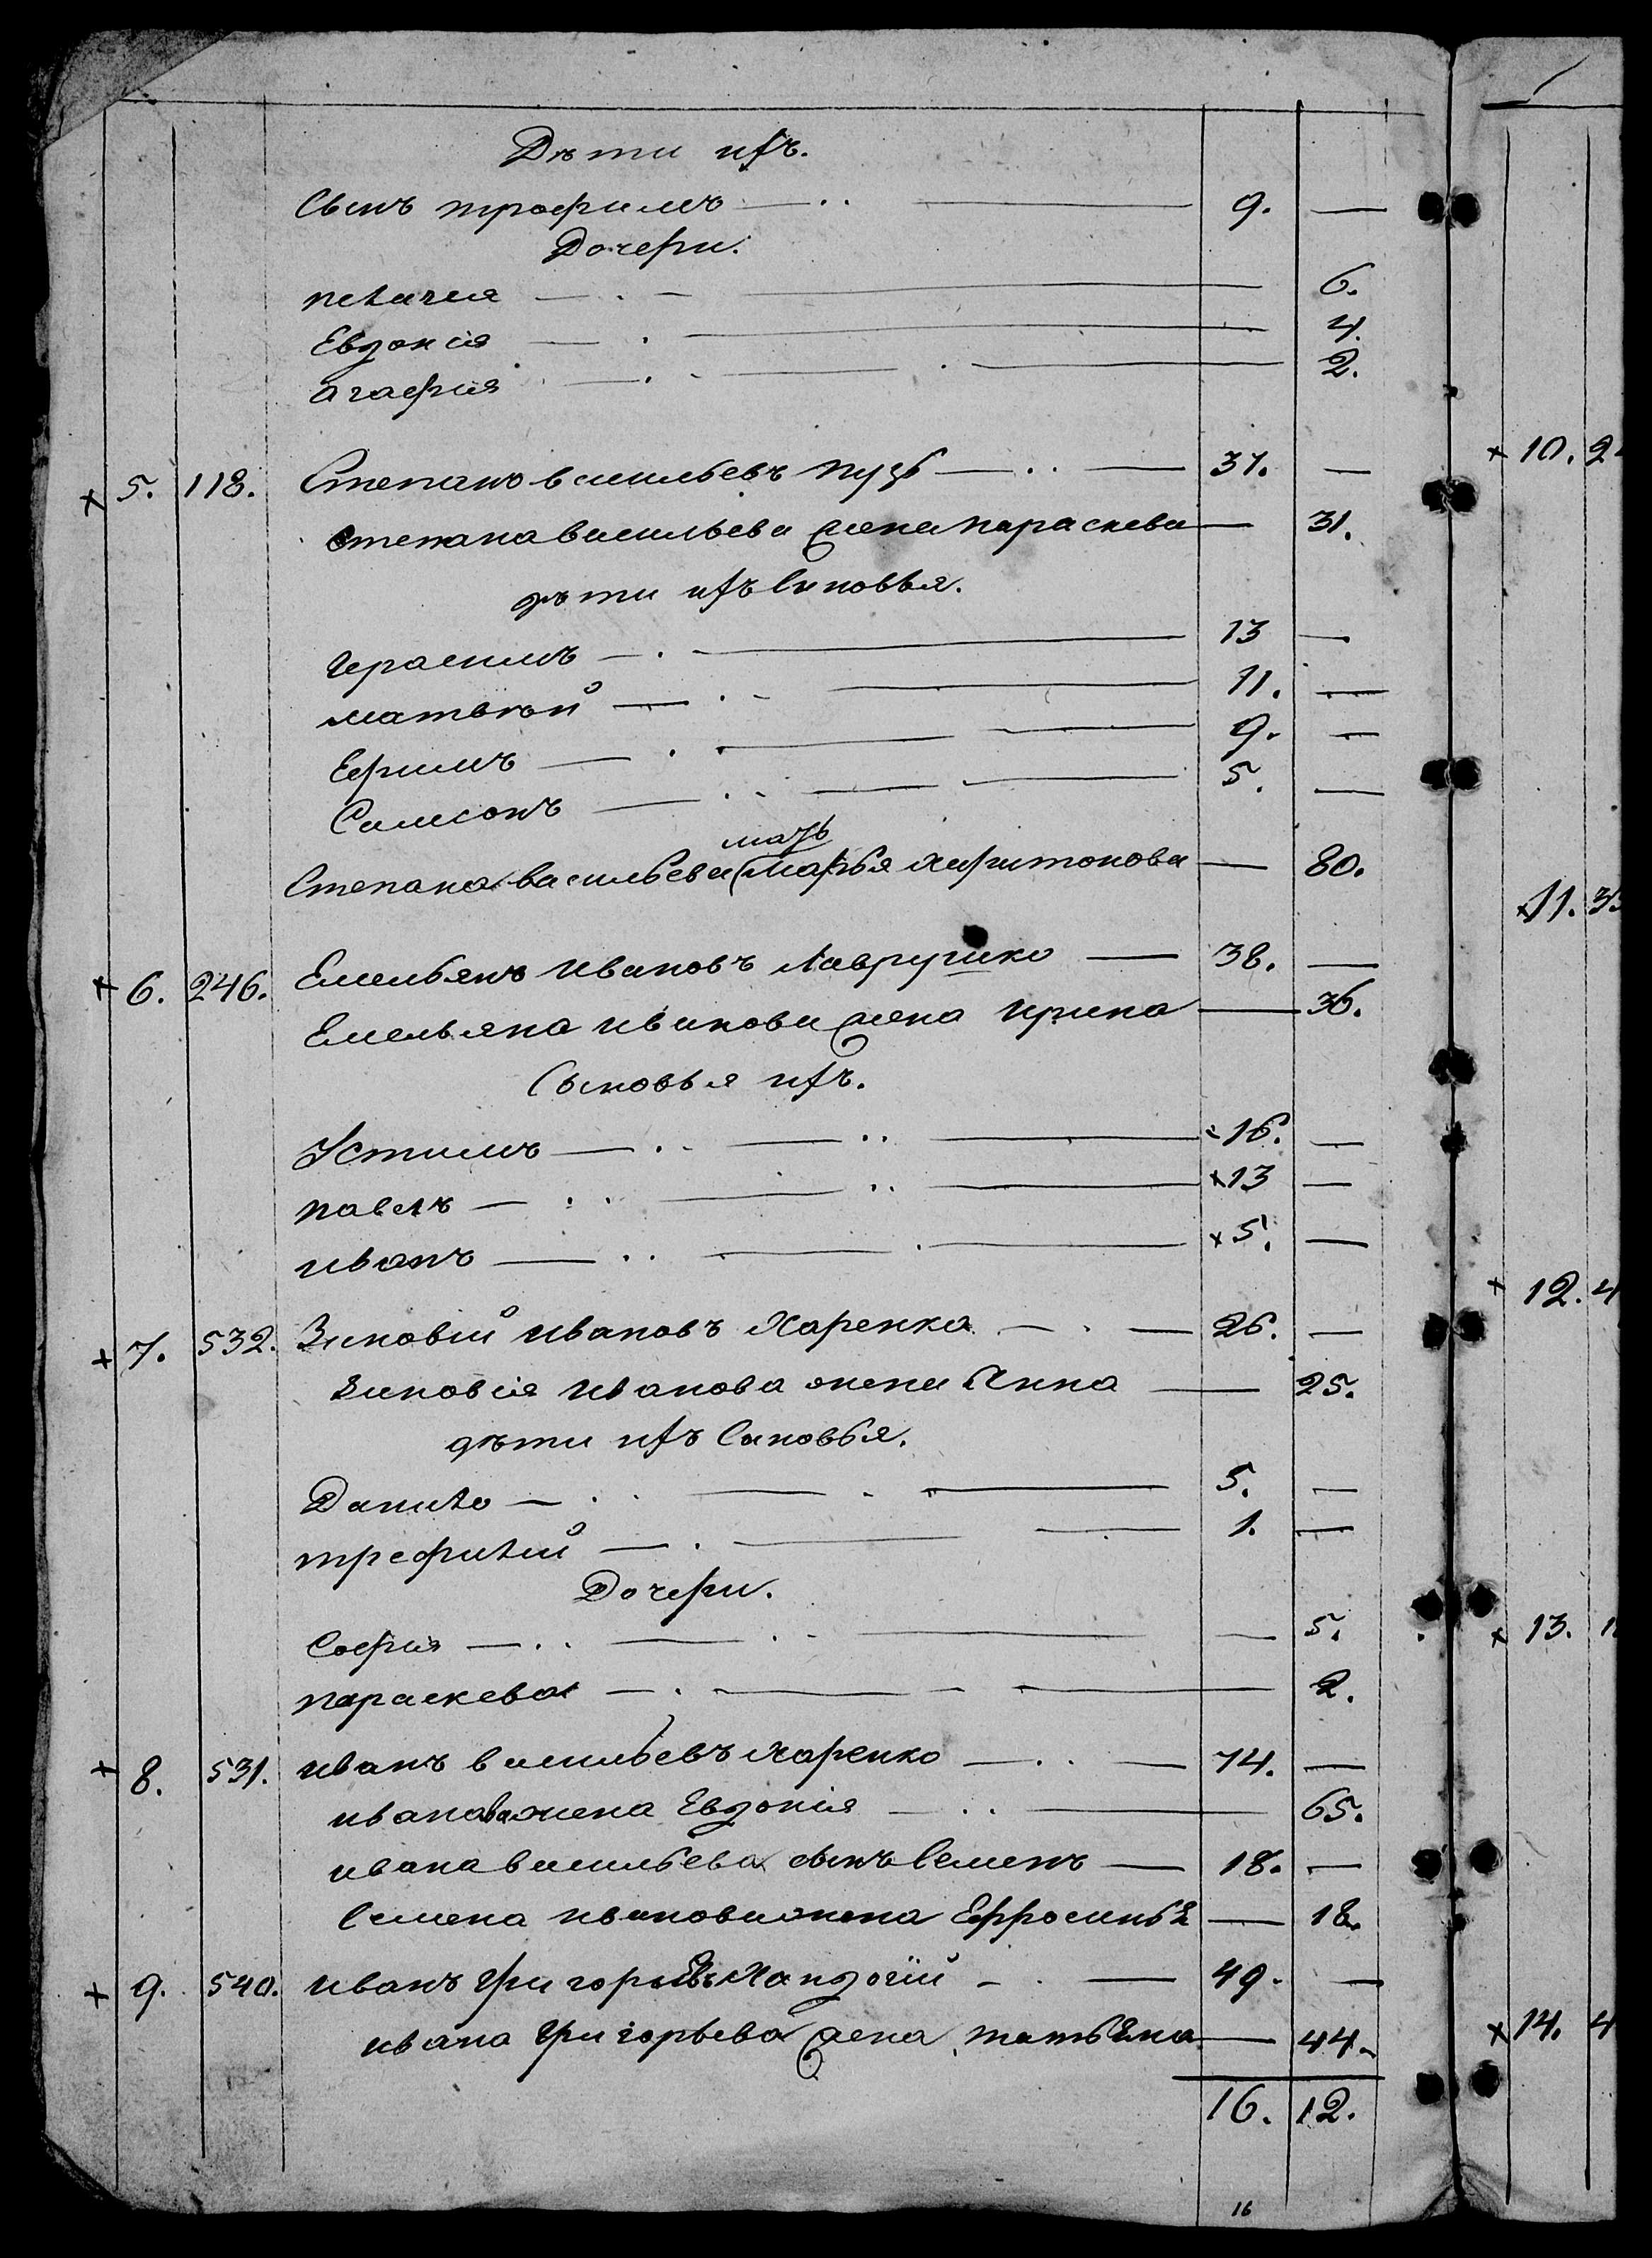 Дѣти ихъ.
Сынъ трофимъ — 9. —
Дочери.
пелагея — 6.
Евдокія — 4.
агафия — 2.
× 5. 118. Степанъ васильевъ пузъ — 37. —
степана васильева жена параскева — 31.
дѣти ихъ Сыновья.
Герасимъ — 13 —
матвѣй — 11. —
Ефимъ — 9. —
Самсонъ — 5. —
Степана васильева мать Марья Харитонова — 80.
× 6. 246. Емельянъ ивановъ лаврушко — 38. —
Емельяна иванова жена ирина — 36.
Сыновья ихъ.
Устимъ — ×16. —
павелъ — ×13 —
иванъ — ×5. —
× 7. 532. Зиновій ивановъ Харенко — 26. —
Зиновія иванова жена Анна — 25.
дѣти ихъ Сыновья.
Данило — 5. —
трефилий — 1. —
Дочери.
София — 5.
параскева — 2.
× 8. 531. иванъ васильевъ харенко — 74. —
иванова жена Евдокія — 65.
ивана васильева сынъ Семенъ — 18. —
Семена иванова жена Ефросинья — 18.
× 9. 540. иванъ григорьевъ — 49. —
ивана григорьева жена татьяна — 44.
16. 12.
16
× 10. 2
× 11. 3
× 12. 4
× 13. 1
× 14. 4